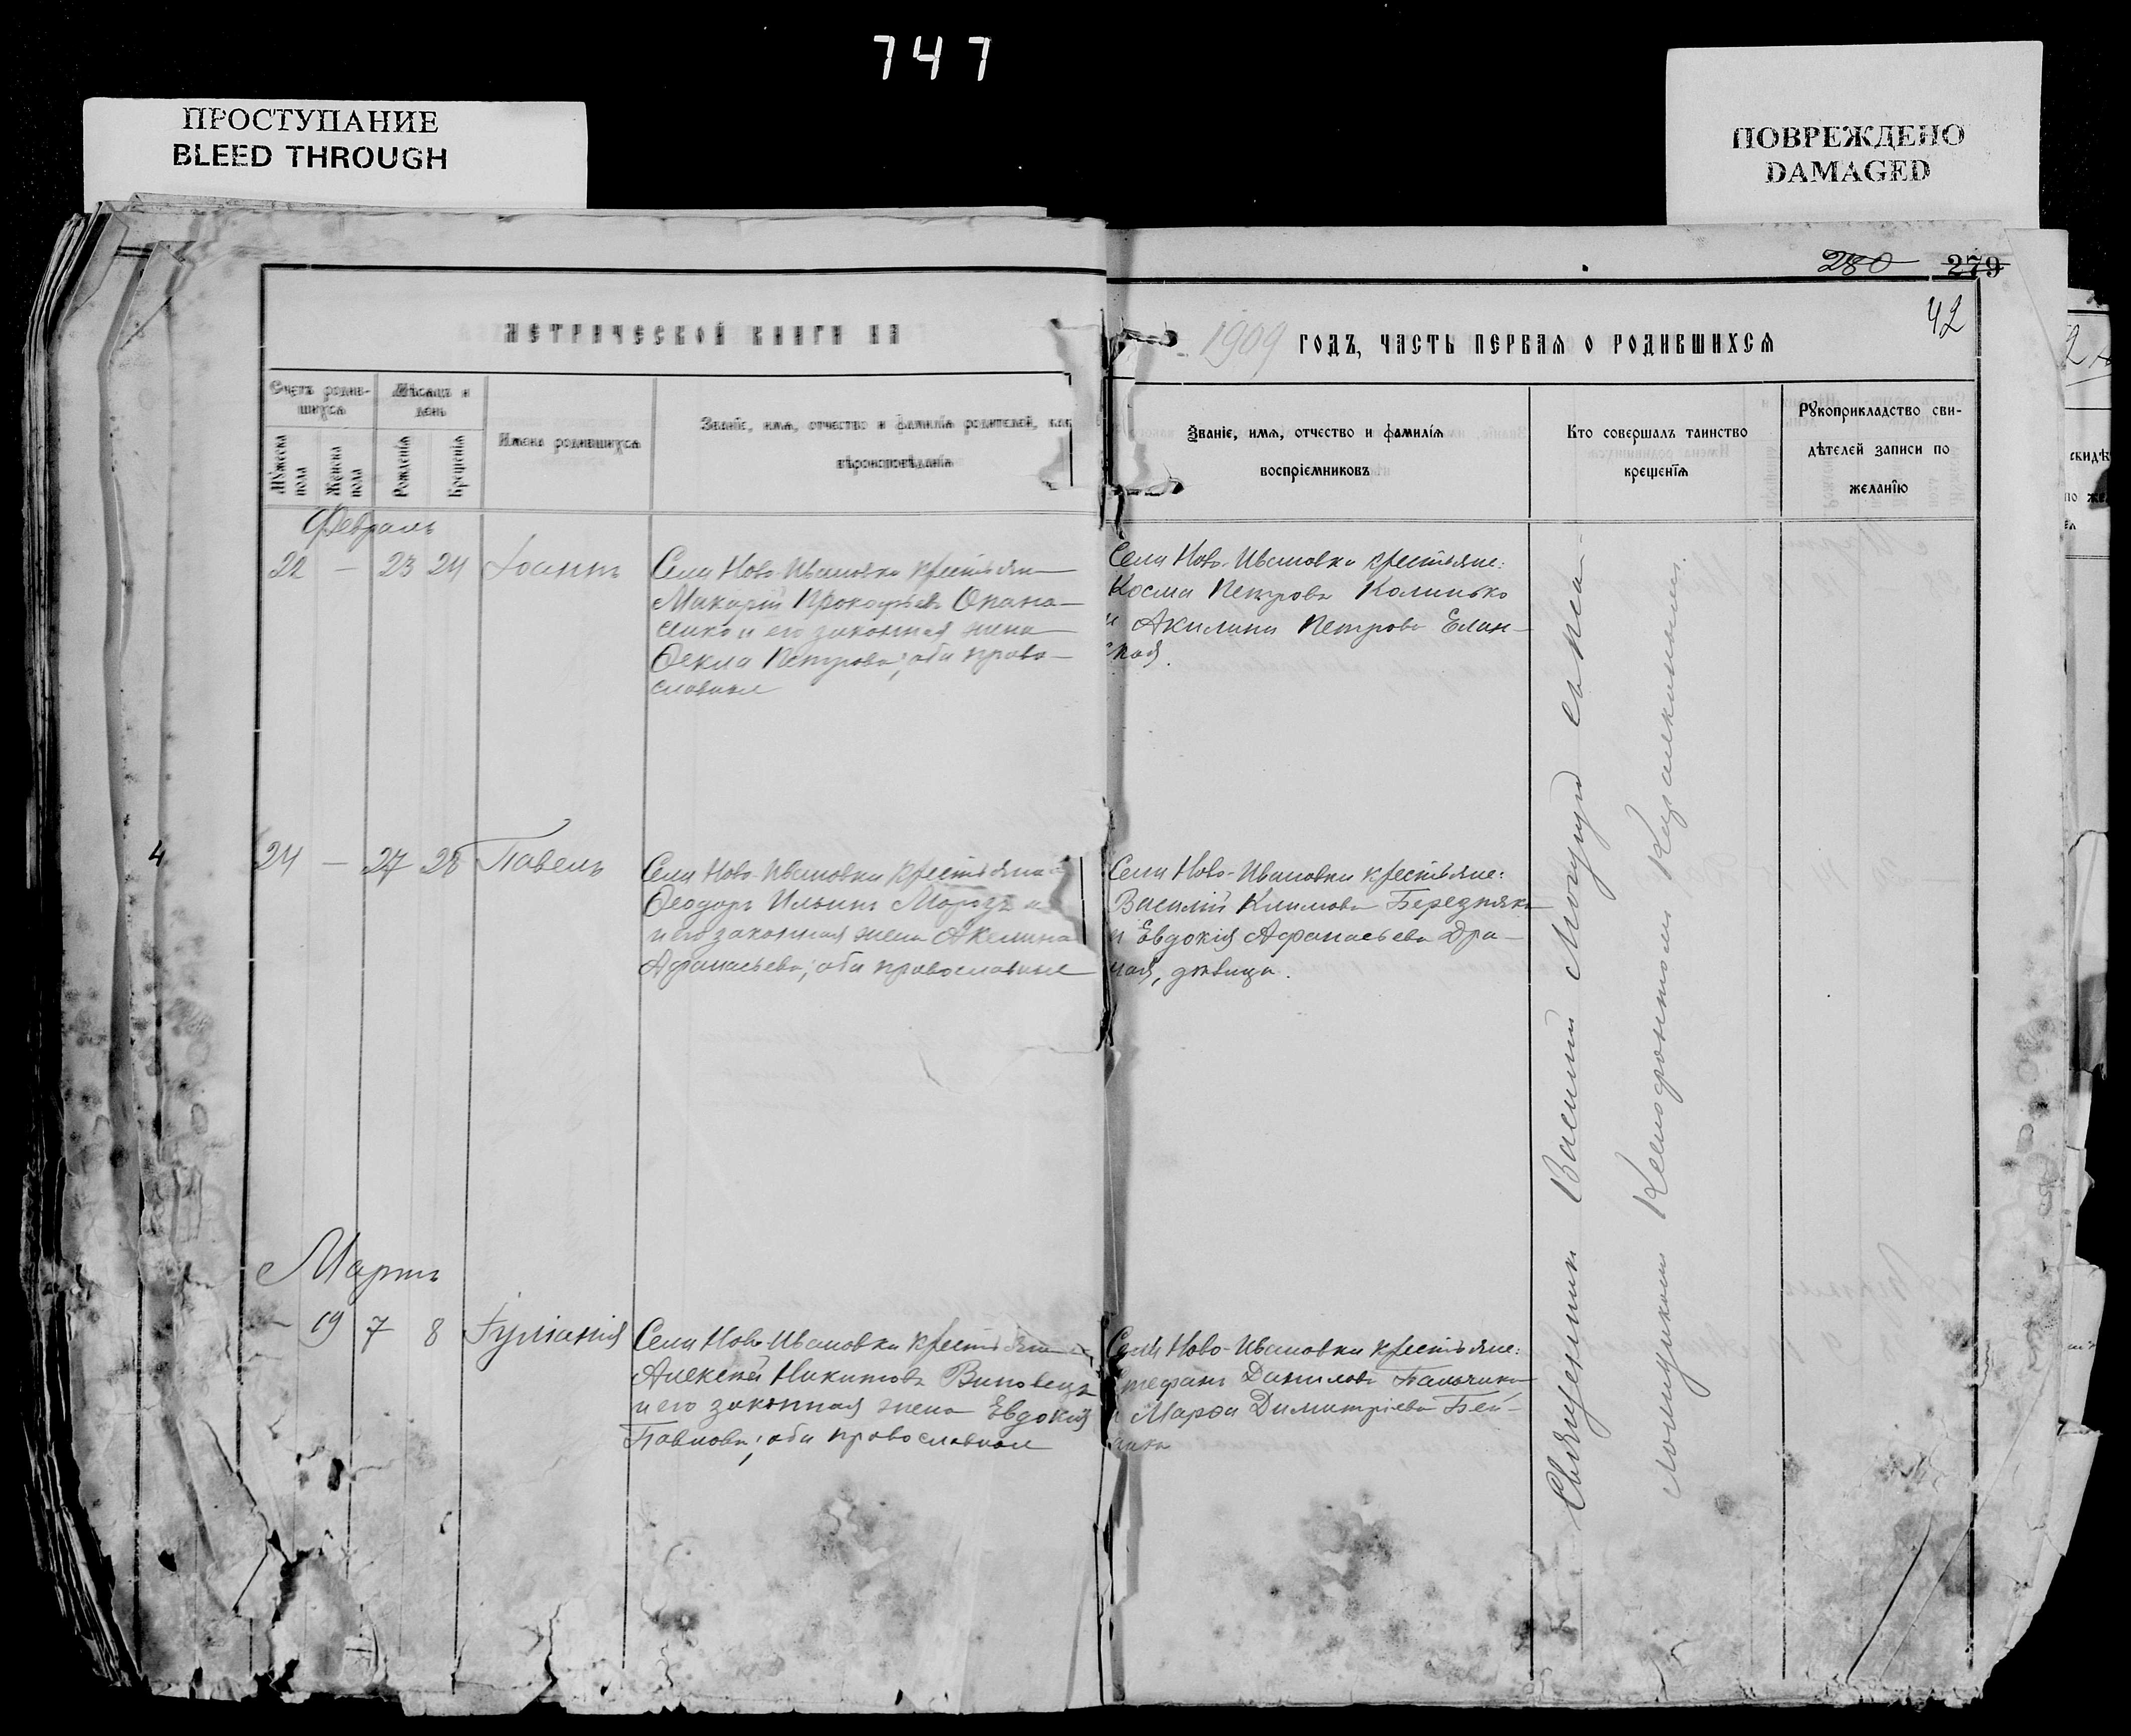 747
ПРОСТУПАНИЕ
BLEED THROUGH
ПОВРЕЖДЕНО
DAMAGED
280 279
42
МЕТРИЧЕСКОЙ КНИГИ НА
1909 ГОДЪ, ЧАСТЬ ПЕРВАЯ О РОДИВШИХСЯ
Счетъ родив-
шихся
Мужеска
пола
Женска
пола
Мѣсяцъ и
день
Рожденія
Крещенія
Имена родившихся
Званіе, имя, отчество и фамилія родителей, как
вѣроисповѣданія
Званіе, имя, отчество и фамилія
воспріемниковъ
Кто совершалъ таинство
крещенія
Рукоприкладство сви-
дѣтелей записи по
желанію
Февраль
22 — 23 24 Іоаннъ
Села Ново-Ивановки крестьян
Макарій Прокофьевъ Опана-
сенко и его законная жена
Ѳекла Петрова; оба право-
славные
Села Ново-Ивановки крестьяне:
Косма Петровъ
и Акилина Петрова Елан-
ская.
4
24 — 27 28 Павелъ
Села Ново-Ивановки крестьяна
Ѳеодоръ Ильинъ Морозъ и
и его законная жена Акелина
Афанасьева; оба православные
Села Ново-Ивановки крестьяне:
Василій Климовъ Березнякъ
и Евдокія Афанасьева Дра-
ная, дѣвица.
Мартъ
— 19 7 8 Іуліанія
Села Ново-Ивановки крестьяне
Алексѣй Никитовъ Виновецъ
и его законная жена Евдокія
Павлова; оба православные
Села Ново-Ивановки крестьяне:
Стефанъ Даниловъ
и Марѳа Димитріева Бей-
Священник Василий Могура съ пса-
ломщиком Ксенофонтом